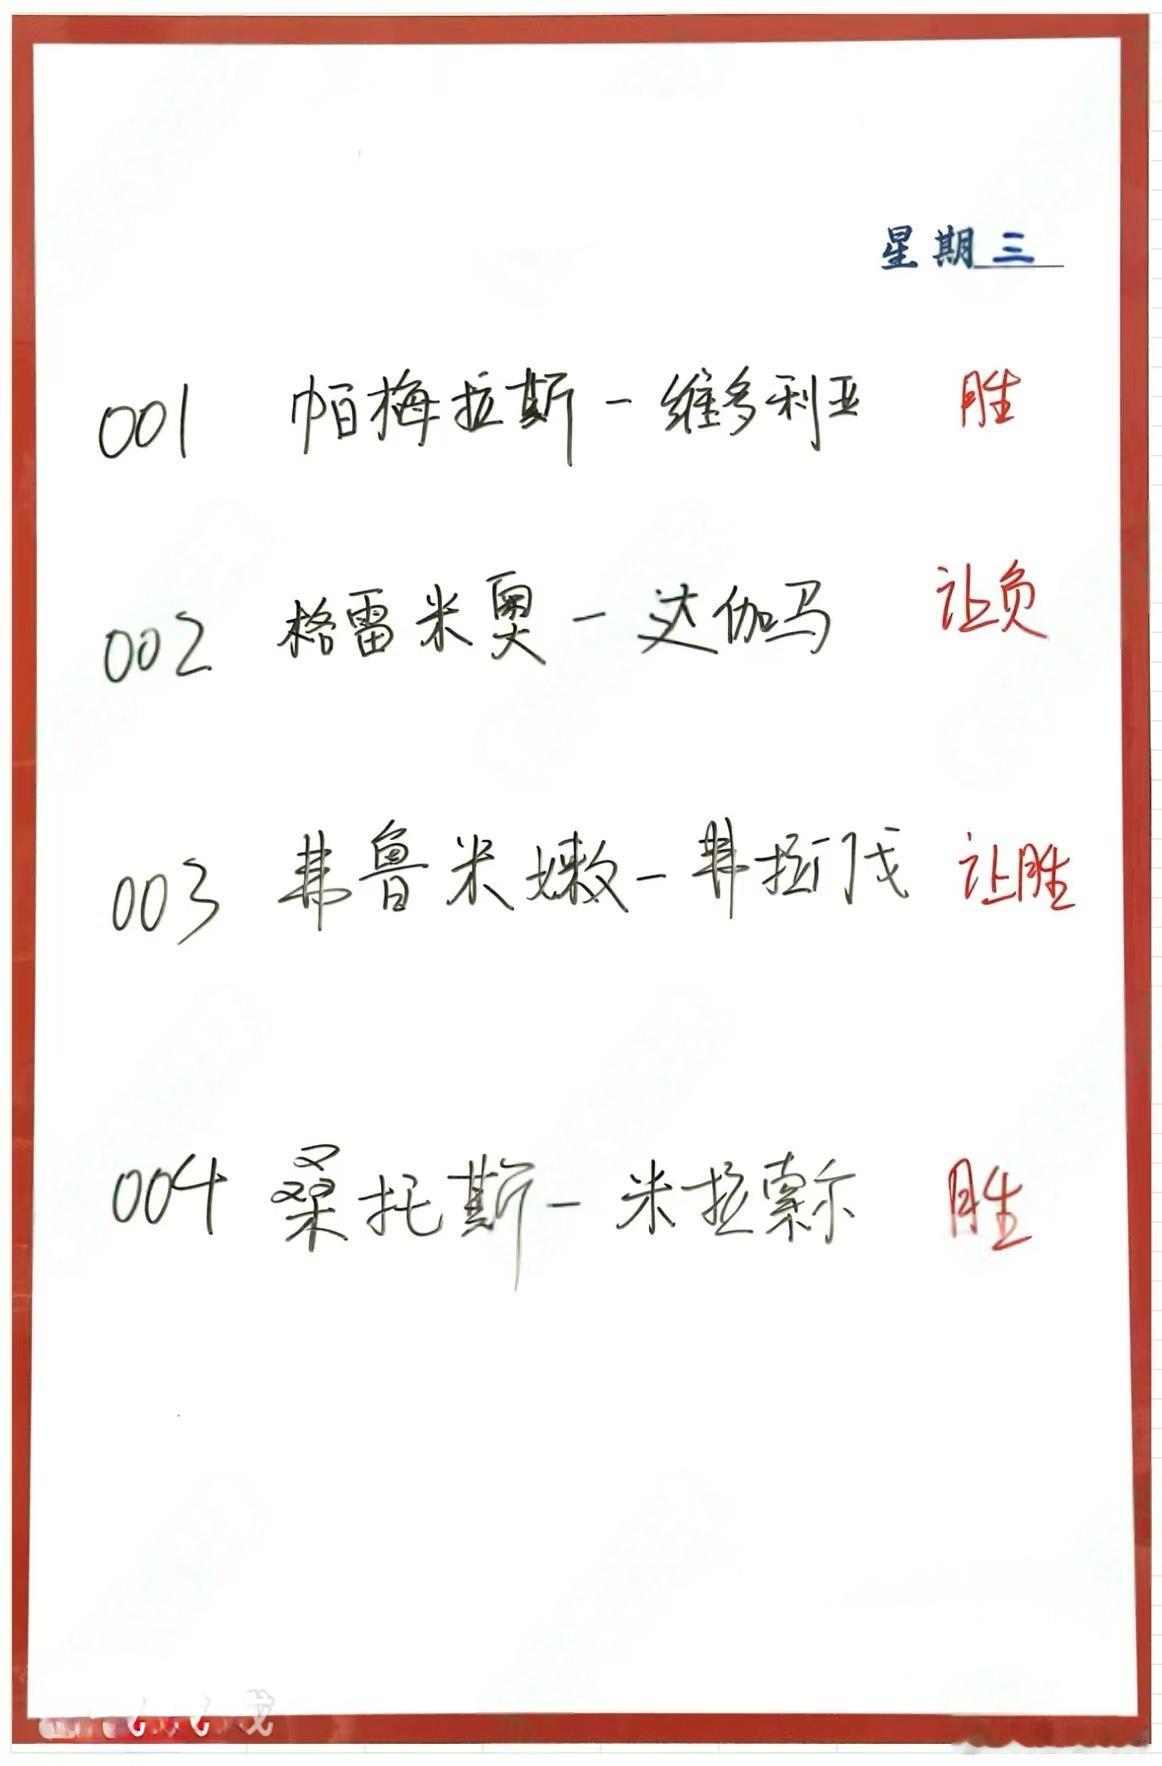 星期三
001 帕梅拉斯-维多利亚 胜
002 格雷米奥-达伽马 让负
003 弗鲁米嫩-弗拉门戈 让胜
004 桑托斯-米拉索尔 胜